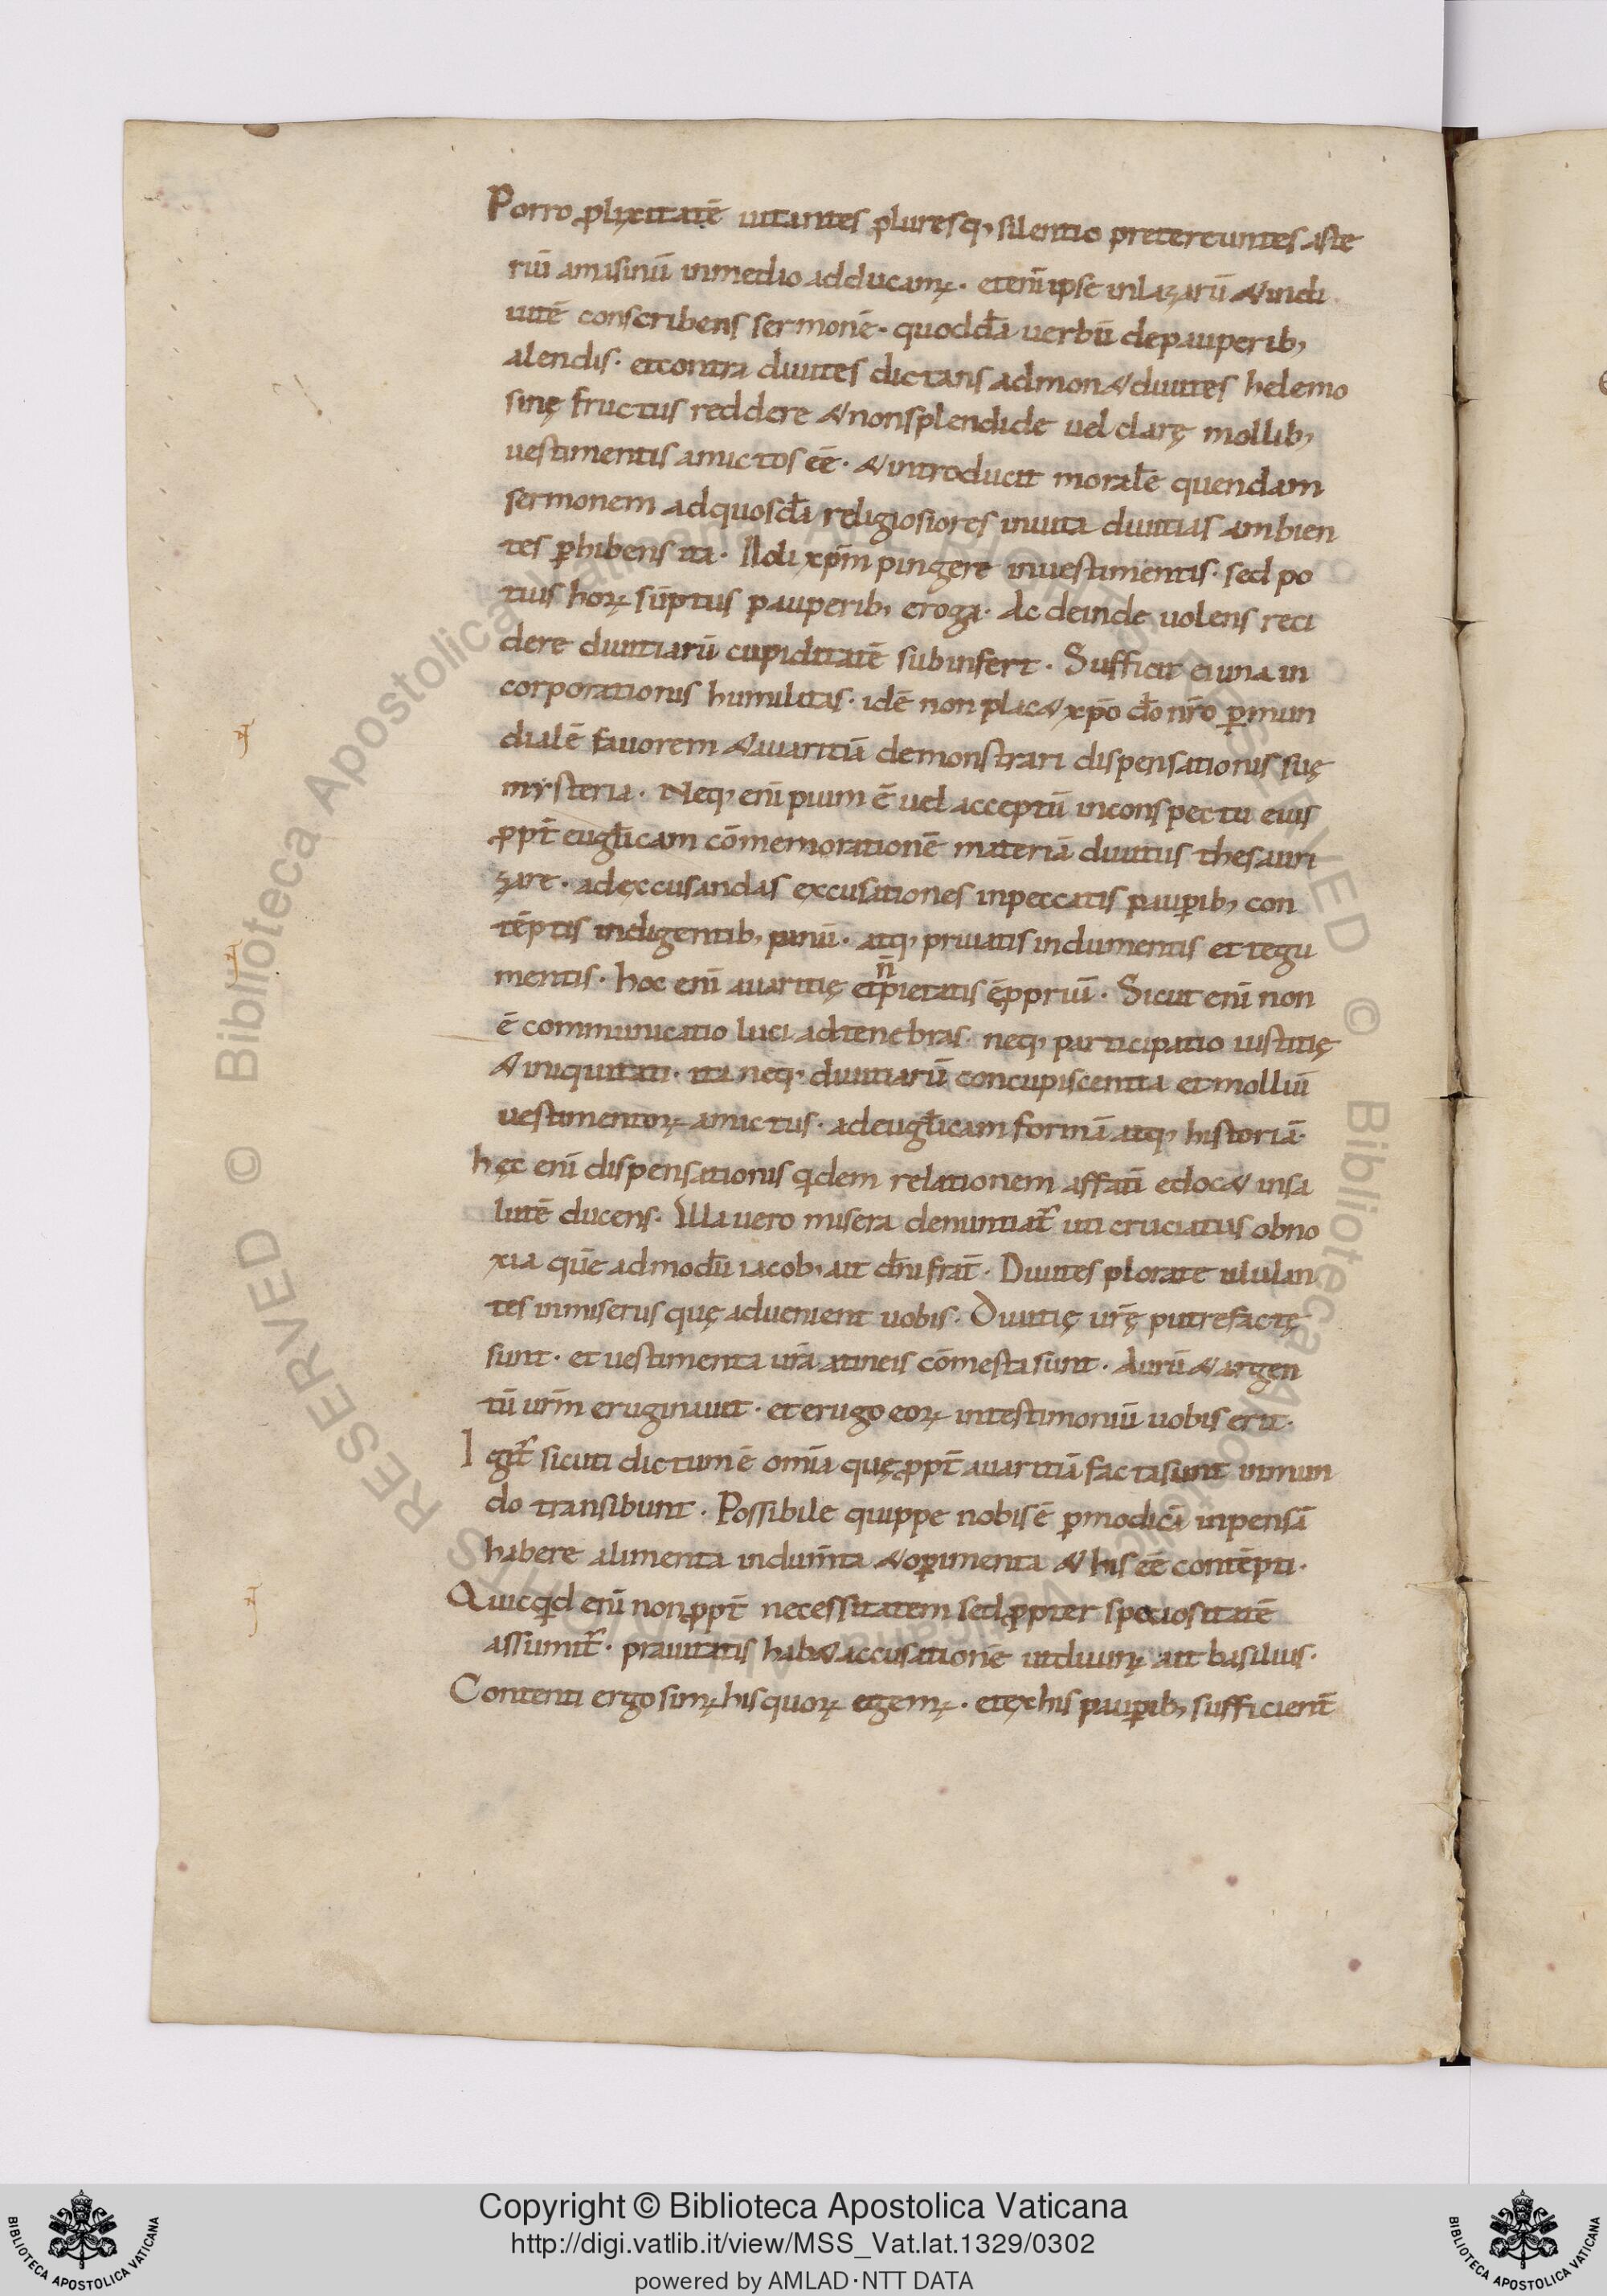 Porro ꝓlixitatē uitantes pluresq, silentio pretereuntes aste
riū amasinū inmedio adducamꝰ. eteni ipse inlazarū & indi
uitē conscribens sermonē. quoddā uerbū depauperib,
alendis. etcontra diuites dictans admon& diuites helemo
sinę fructus reddere & nonsplendide uel clarę mollib,
uestimentis amictos eē. & introducit moralē quendam
sermonem adquosdā religiosiores inuita diuitias ambien
tes ꝑhibens ita. Noli xp̄m pingere inuestimentis. sed po
tius horꝝ sūptus pauperib, eroga. Ac deinde uolens reci
dere diuitiarū cupiditatē subinfert. Sufficit ei una in
corporationis humilitas. idē non plac& xp̄o dō nr̄o ꝑmun
dialē fauorem & auaritiā demonstrari dispensationis suę
mysteria. Neq, eni pium ē uel acceptū inconspectu eius
ꝓpt̄ euglicam cōmemorationē materiā diuitiis thesauri
zare. adexcusandas excusationes inpeccatis pauꝑib, con
tēptis indigentib, panū. atq, priuatis indumentis et tegu
mentis. hoc eni auaritię et n̄ pietatis ē ꝓpriū. Sicut eni non
ē communicatio luci adtenebras. neq, participatio iustitię
& iniquitati. ita neq, diuitiarū concupiscentia et molliū
uestimentorꝝ amictus. adeuglicam formā atq, historiā.
hęc eni dispensationis qdem relationem affatī edoc& insa
lutē ducens. Illa uero misera denuntiat᷑ uti cruciatus obno
xia quē admodū iacob, ait dn̄i frat̄. Diuites plorate ululan
tes inmiseriis quę aduenient uobis. Diuitię ur̄ę putrefactę
sunt. et uestimenta ur̄a atineis cōmesta sunt. Aurū & argen
tū ur̄m eruginauit. et erugo eorꝝ intestimoniū uobis erit.
Igit᷑ sicuti dictum ē omīa quę ꝓpt̄ auaritiā facta sunt inmun
do transibunt. Possibile quippe nobis ē ꝑmodicā inpensā
habere alimenta indum̄ta & oꝑimenta & his eē contēpti.
Quicqd eni non ꝓpt̄ necessitatem sed ꝓpter speciositatē
assumit᷑. prauitatis hab& accusationē utdiuinꝰ ait basilius.
Contenti ergo simꝰ his quorꝝ egemꝰ. etexhis pauꝑib, sufficient̄
Copyright © Biblioteca Apostolica Vaticana
http://digi.vatlib.it/view/MSS_Vat.lat.1329/0302
powered by AMLAD·NTT DATA
BIBLIOTECA APOSTOLICA VATICANA
BIBLIOTECA APOSTOLICA VATICANA